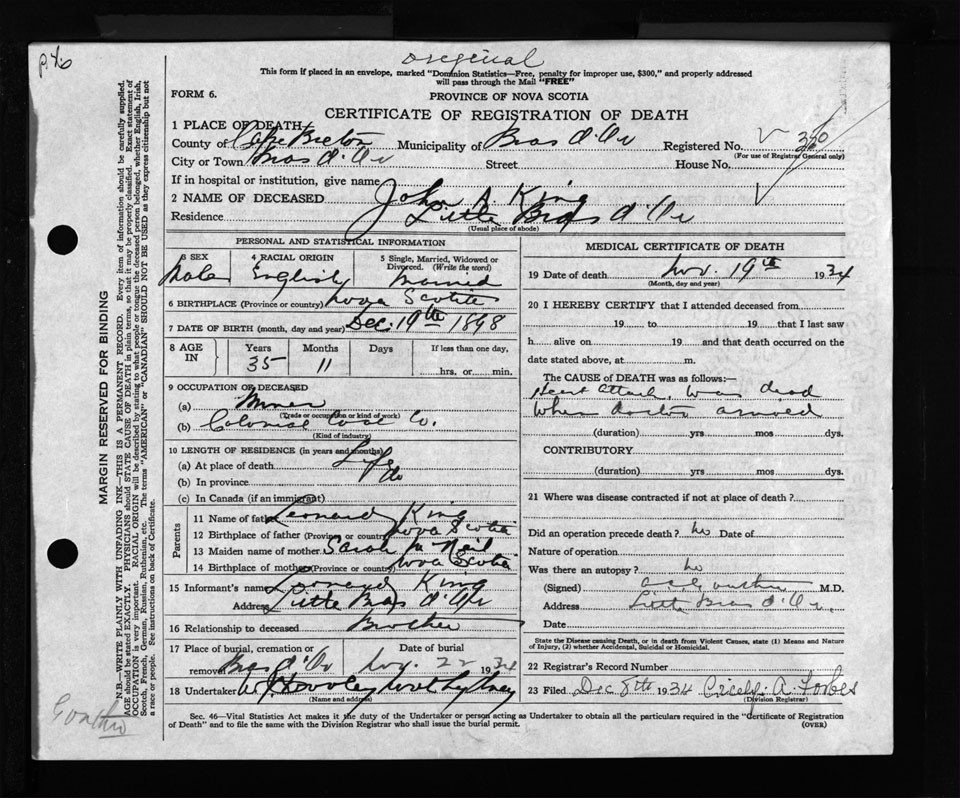 p. 46
original
This form if placed in an envelope, marked "Dominion Statistics—Free, penalty for improper use, $300," and properly addressed
will pass through the Mail "FREE"
FORM 6.
PROVINCE OF NOVA SCOTIA
CERTIFICATE OF REGISTRATION OF DEATH
1 PLACE OF DEATH
County of Cape Breton Municipality of Bras d'Or Registered No. 320
(For use of Registrar General only)
City or Town Bras d'Or Street House No.
If in hospital or institution, give name
2 NAME OF DECEASED John A. King
Residence Little Bras d'Or
(Usual place of abode)
PERSONAL AND STATISTICAL INFORMATION
3 SEX Male
4 RACIAL ORIGIN English
5 Single, Married, Widowed or Divorced. (Write the word) Married
6 BIRTHPLACE (Province or country) Nova Scotia
7 DATE OF BIRTH (month, day and year) Dec. 19th 1898
8 AGE IN Years 35 Months 11 Days If less than one day, hrs. or min.
9 OCCUPATION OF DECEASED
(a) Miner
(Trade or occupation or kind of work)
(b) Colonial Coal Co.
(Kind of industry)
10 LENGTH OF RESIDENCE (in years and months)
(a) At place of death Life
(b) In province do
(c) In Canada (if an immigrant)
Parents
11 Name of father Leonard King
12 Birthplace of father (Province or country) Nova Scotia
13 Maiden name of mother Sarah Mc Neil
14 Birthplace of mother (Province or country) Nova Scotia
15 Informant's name Leonard King
Address Little Bras d'Or
16 Relationship to deceased Brother
17 Place of burial, cremation or removal Bras d'Or Date of burial Nov. 22 1934
18 Undertaker North Sydney
(Name and address)
MEDICAL CERTIFICATE OF DEATH
19 Date of death Nov. 19th 1934
(Month, day and year)
20 I HEREBY CERTIFY that I attended deceased from
19 to 19 that I last saw
h alive on 19 and that death occurred on the
date stated above, at m.
The CAUSE OF DEATH was as follows:—
Heart attack, was dead
when doctor arrived
(duration) yrs mos dys.
CONTRIBUTORY
(duration) yrs mos dys.
21 Where was disease contracted if not at place of death?
Did an operation precede death? no Date of
Nature of operation
Was there an autopsy? no
(Signed) M.D.
Address Little Bras d'Or,
Date
State the Disease causing Death, or in death from Violent Causes, state (1) Means and Nature
of Injury, (2) whether Accidental, Suicidal or Homicidal.
22 Registrar's Record Number
23 Filed Dec 8th 1934 Cicely A. Forbes
(Division Registrar)
Sec. 46—Vital Statistics Act makes it the duty of the Undertaker or person acting as Undertaker to obtain all the particulars required in the "Certificate of Registration
of Death" and to file the same with the Division Registrar who shall issue the burial permit.
(OVER)
MARGIN RESERVED FOR BINDING
N.B.—WRITE PLAINLY WITH UNFADING INK—THIS IS A PERMANENT RECORD. Every item of information should be carefully supplied.
AGE should be stated EXACTLY. PHYSICIANS should STATE CAUSE OF DEATH in plain terms, so that it may be properly classified. Exact statement of
OCCUPATION is very important. RACIAL ORIGIN will be described by stating to what people or tongue the deceased person belonged, whether English, Irish,
Scotch, French, German, Russian, Ruthenian, etc. The terms "AMERICAN" or "CANADIAN" SHOULD NOT BE USED as they express citizenship but not
a race or people. See instructions on back of Certificate.